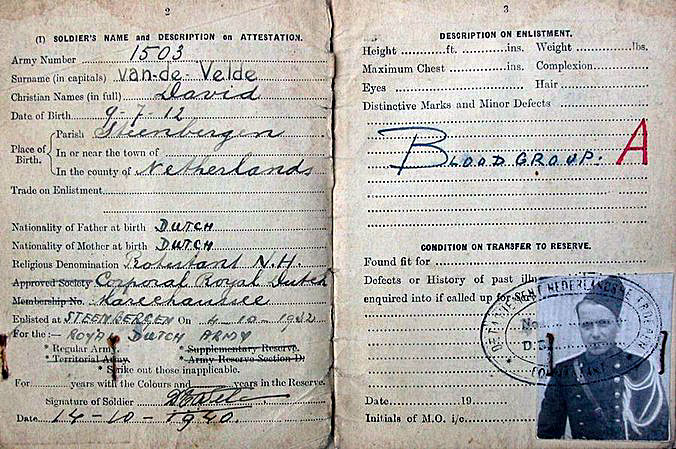 2
(I) SOLDIER'S NAME and DESCRIPTION on ATTESTATION.
Army Number 1503
Surname (in capitals) Van-de-Velde
Christian Names (in full) David
Date of Birth 9-7-12
Place of Birth. { Parish Steenbergen
In or near the town of
In the county of Netherlands
Trade on Enlistment
Nationality of Father at birth DUTCH
Nationality of Mother at birth DUTCH
Religious Denomination Protestant N.H.
Approved Society Corporal Royal Dutch
Membership No. Marechaussee
Enlisted at STEENBERGEN On 4-10-1932
For the:— ROYAL DUTCH ARMY
* Regular Army. * Supplementary Reserve.
* Territorial Army. * Army Reserve Section D.
* Strike out those inapplicable.
For years with the Colours and years in the Reserve.
Signature of Soldier
Date 14-10-1940.
3
DESCRIPTION ON ENLISTMENT.
Height ft. ins. Weight lbs.
Maximum Chest ins. Complexion
Eyes Hair
Distinctive Marks and Minor Defects
BLOODGROUP: A
CONDITION ON TRANSFER TO RESERVE.
Found fit for
Defects or History of past
enquired into if called up for
NEDERLANDSCHE
No.
Date 19
Initials of M.O. i/c.